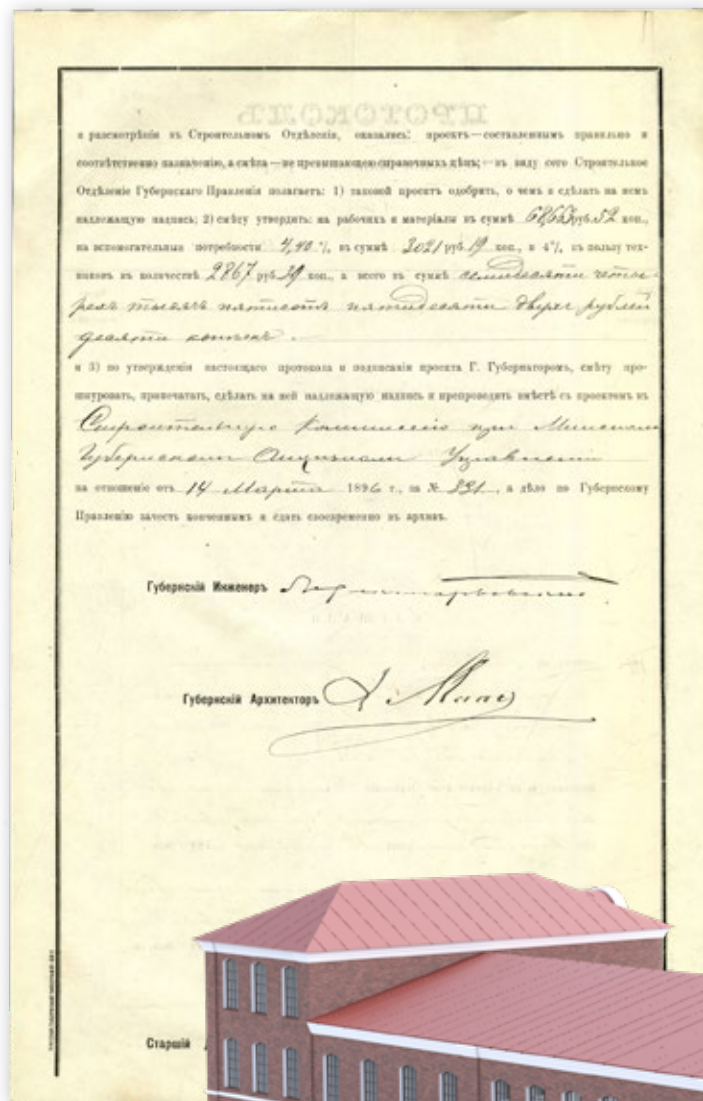 ПРОТОКОЛЪ
и разсмотрѣніи въ Строительномъ Отдѣленіи, оказались: проектъ—составленнымъ правильно и
соотвѣтственно назначенію, а смѣта—не превышающею справочныхъ цѣнъ;—въ виду сего Строительное
Отдѣленіе Губернскаго Правленія полагаетъ: 1) таковой проектъ одобрить, о чемъ и сдѣлать на немъ
надлежащую надпись; 2) смѣту утвердить: на рабочихъ и матеріалы въ суммѣ 68663 руб. 52 коп.,
на вспомогательныя потребности 4,40 %, въ суммѣ 3021 руб. 19 коп., и 4%, въ пользу тех-
никовъ въ количествѣ 2867 руб. 39 коп., а всего въ суммѣ семидесяти четы-
рехъ тысячъ пятисотъ пятидесяти двухъ рублей
десяти копѣекъ.
и 3) по утвержденіи настоящаго протокола и подписаніи проекта Г. Губернаторомъ, смѣту про-
шнуровать, припечатать, сдѣлать на ней надлежащую надпись и препроводить вмѣстѣ съ проектомъ въ
Строительную Коммиссію при Минскомъ
Губернскомъ Акцизномъ Управленіи
на отношеніе отъ 14 Марта 1896 г., за № 331, а дѣло по Губернскому
Правленію зачесть конченнымъ и сдать своевременно въ архивъ.
Губернскій Инженеръ
Губернскій Архитекторъ
Старшій